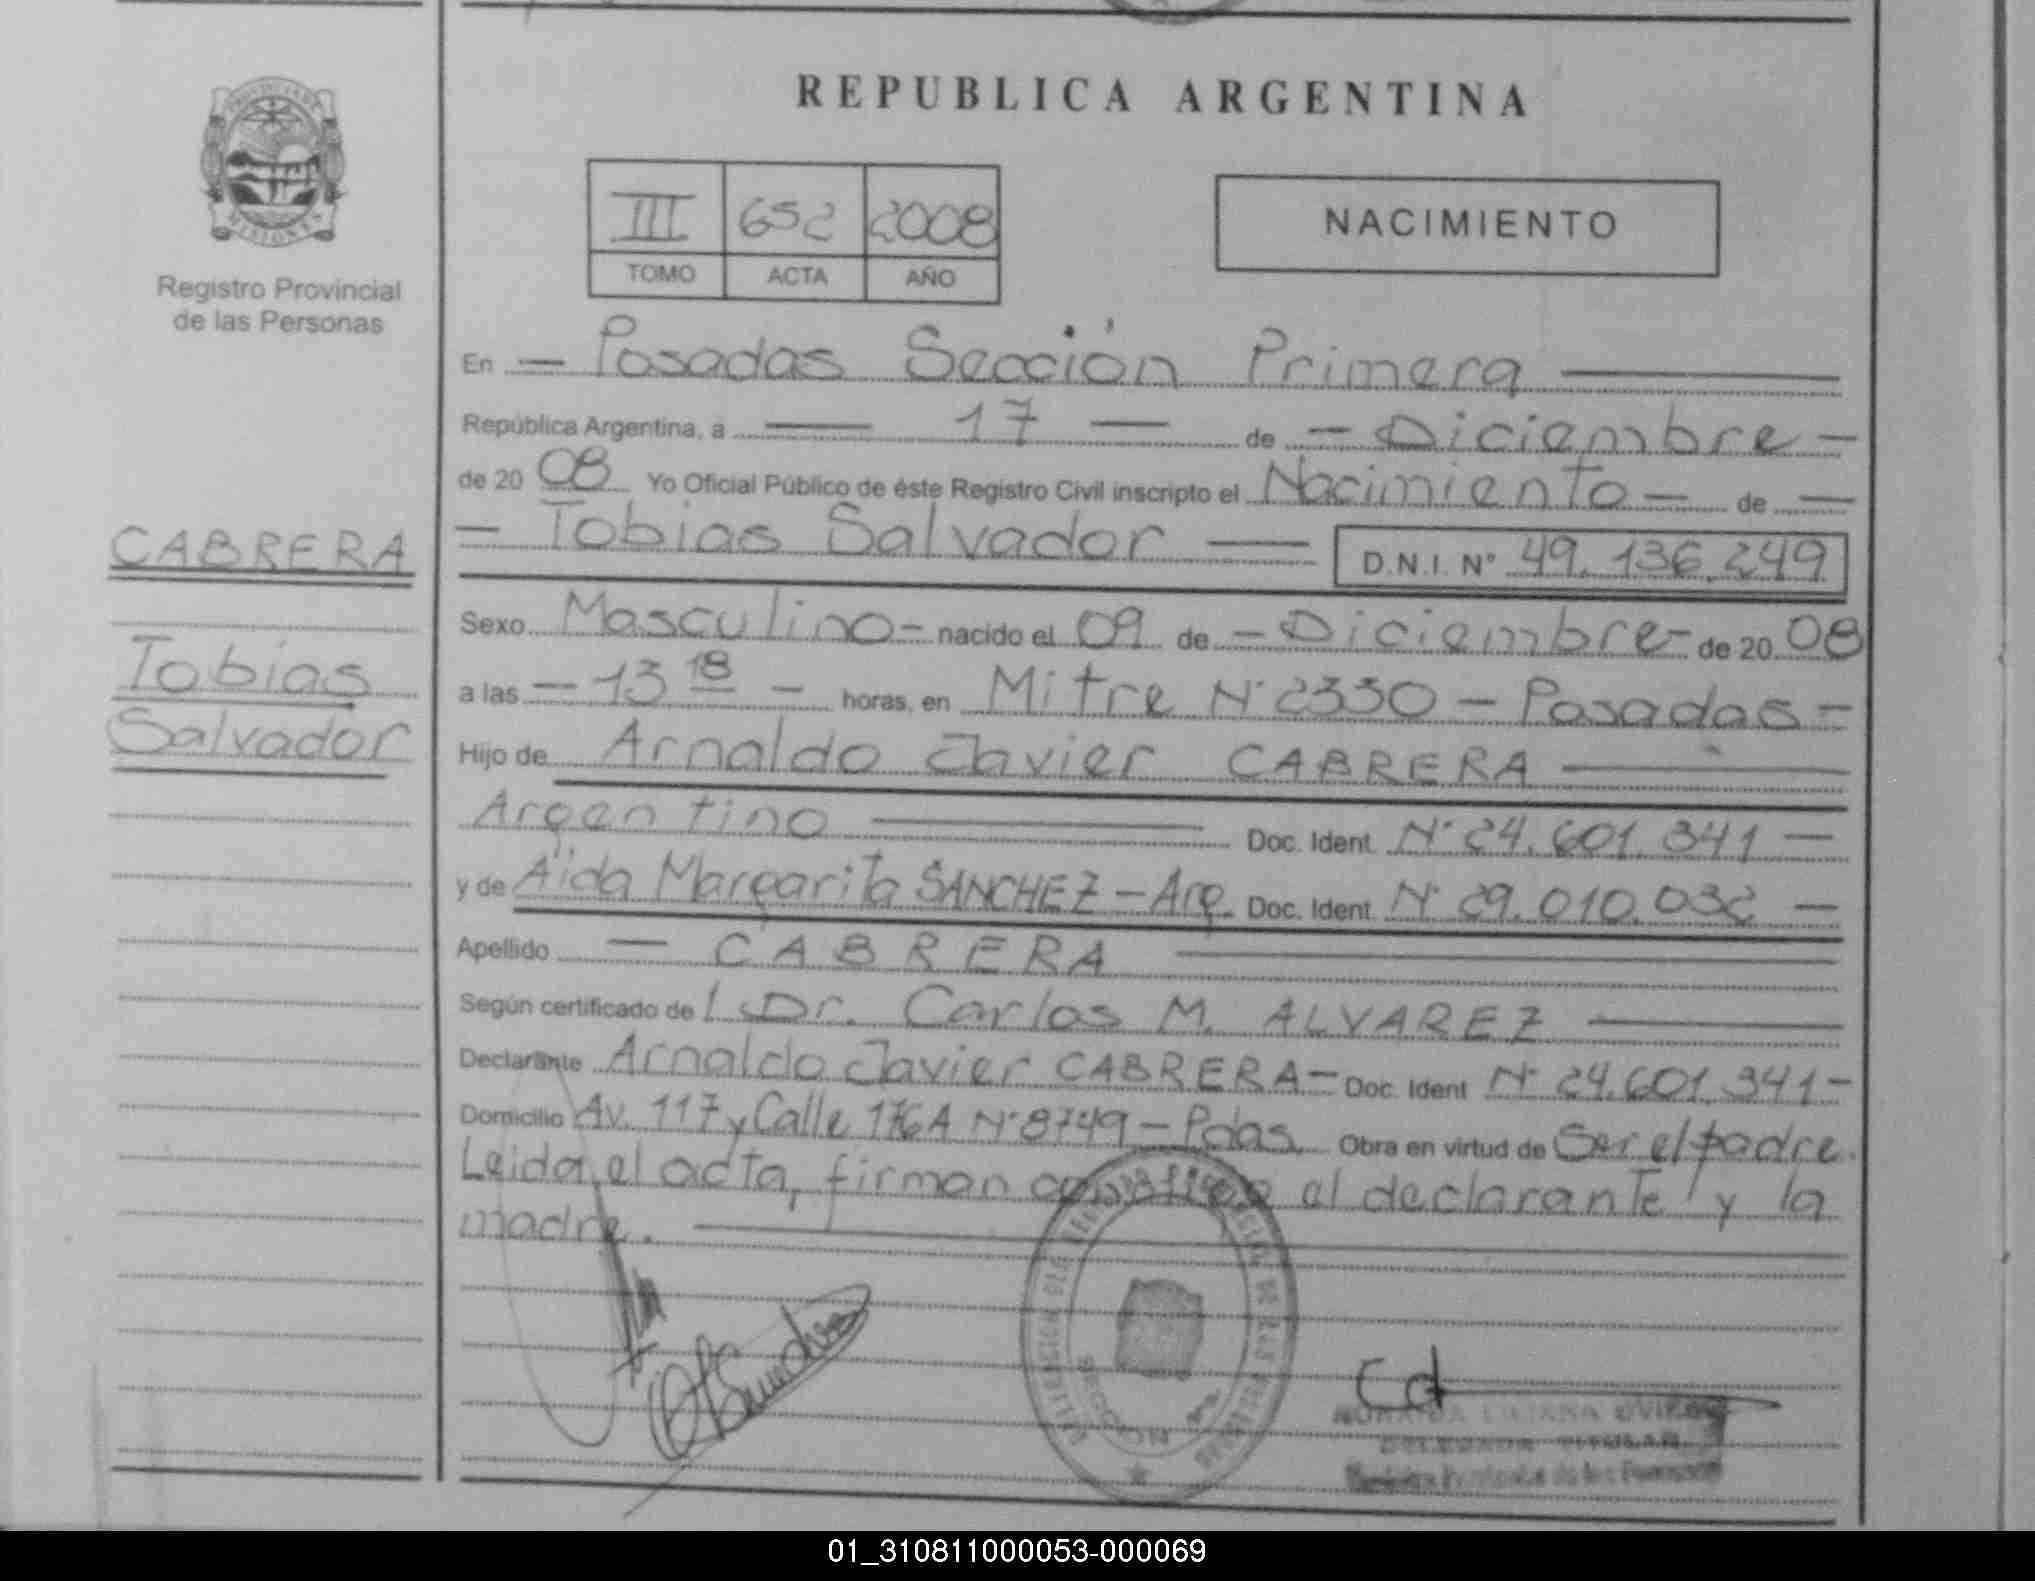 REPUBLICA ARGENTINA
PROVINCIA DE
MISIONES
Registro Provincial
de las Personas
III 652 2008
TOMO ACTA AÑO
NACIMIENTO
CABRERA
Tobias
Salvador
En — Posadas Sección Primera —
República Argentina, a — 17 — de — Diciembre —
de 20 08 Yo Oficial Público de éste Registro Civil inscripto el Nacimiento — de —
— Tobias Salvador — D.N.I. N° 49.136.249
Sexo Masculino — nacido el 09 de — Diciembre — de 20 08
a las — 13 18 — horas, en Mitre N° 2330 — Posadas —
Hijo de Arnaldo Javier CABRERA —
Argentino — Doc. Ident. N° 24.601.341 —
y de Aida Margarita SANCHEZ — Arg. Doc. Ident. N° 29.010.032 —
Apellido — CABRERA —
Según certificado de l Dr. Carlos M. ALVAREZ —
Declarante Arnaldo Javier CABRERA — Doc. Ident N° 24.601.341 —
Domicilio Av. 117 y Calle 176A N° 8749 — Pdas. Obra en virtud de Ser el padre.
Leida el acta, firman conmigo el declarante y la
madre. —
SECCION 1ª
DELEGADA TITULAR
01_310811000053-000069